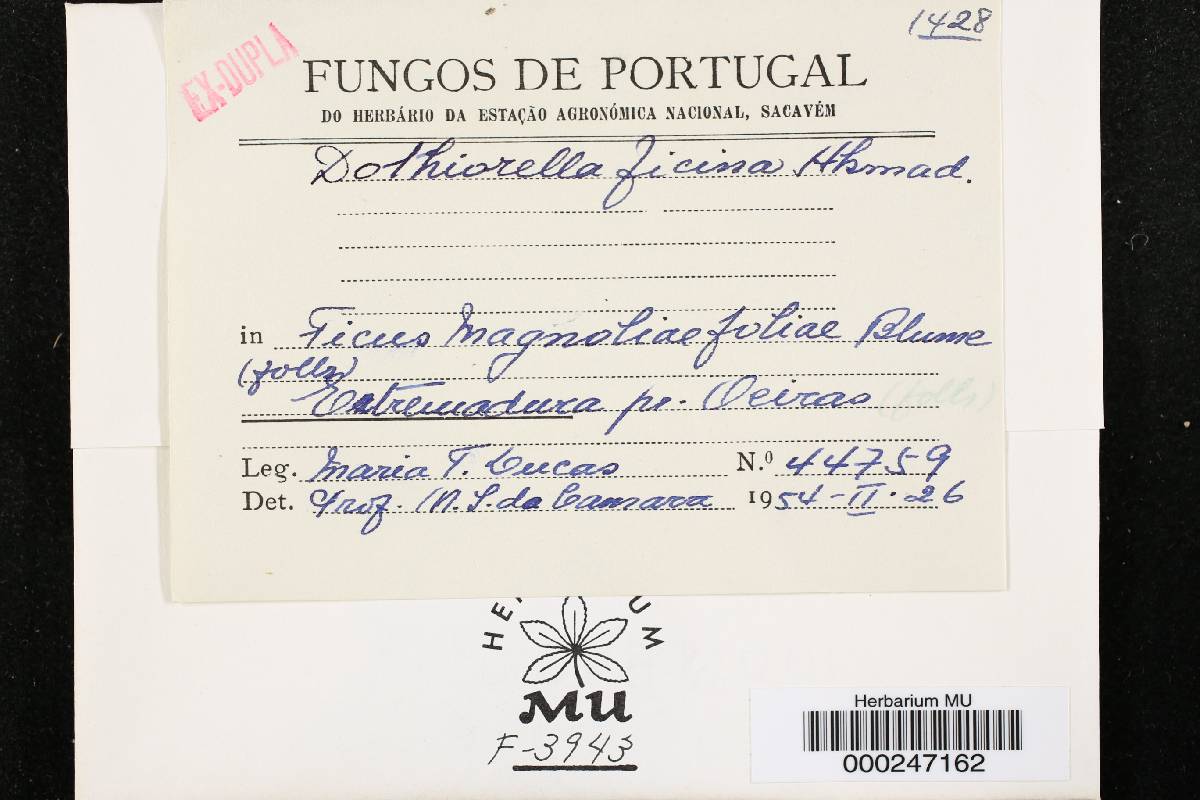 1428
EX-DUPLA
FUNGOS DE PORTUGAL
DO HERBÁRIO DA ESTAÇÃO AGRONÓMICA NACIONAL, SACAVÉM
Dothiorella ficina Ahmad.
in Ficus Magnoliaefoliae Blume
(folls)
Extremadura pr. Oeiras (folls)
Leg. Maria T. Lucas N.º 44759
Det. Prof. M. S. da Camara 1954-II-26
HE UM
MU
F-3943
Herbarium MU
000247162